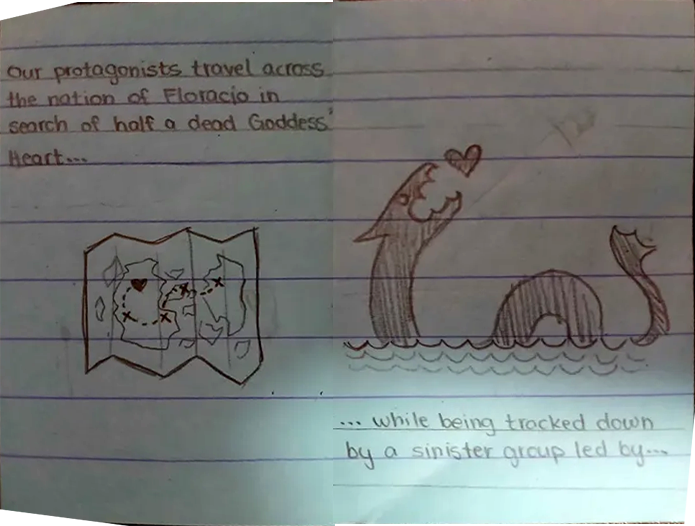 Our protagonists travel across
the nation of Floracio in
search of half a dead Goddess'
Heart...
... while being tracked down
by a sinister group led by...